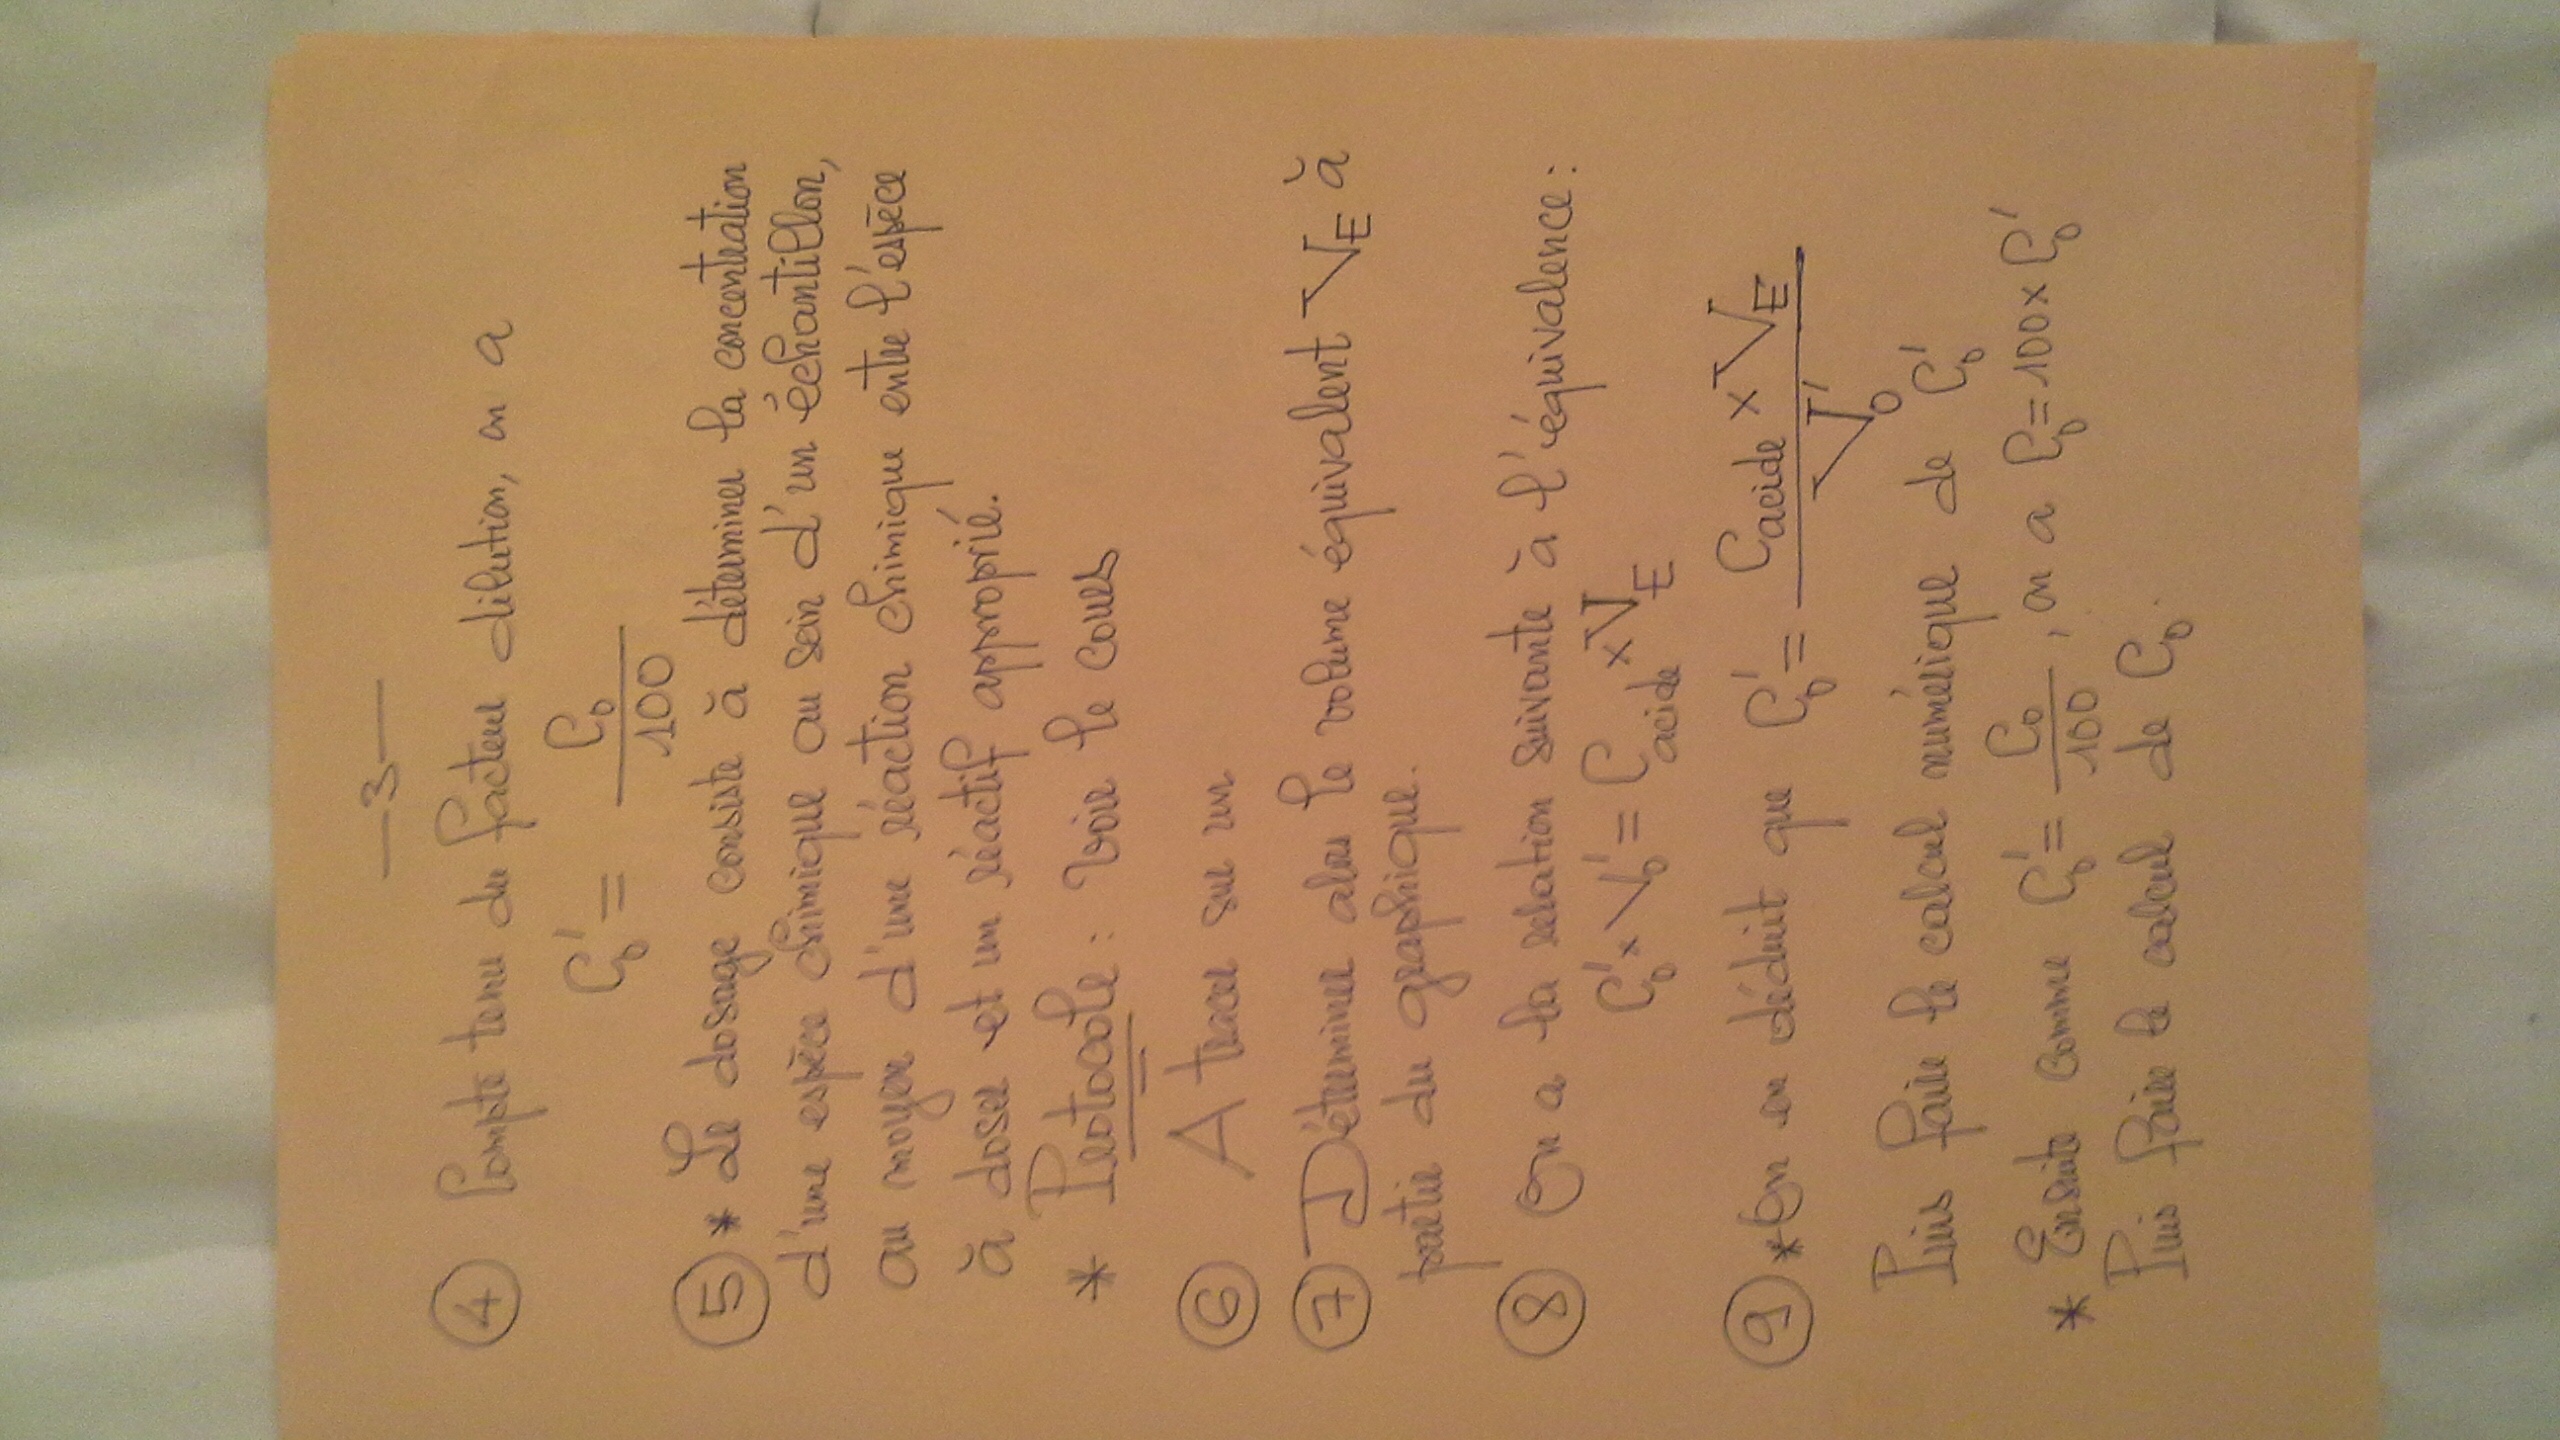 -3-
④ Compte tenu du facteur dilution, on a
C₀' = C₀/100
⑤ * Le dosage consiste à déterminer la concentration
d'une espèce chimique au sein d'un échantillon,
au moyen d'une réaction chimique entre l'espèce
à doser et un réactif approprié.
* Protocole : voir le cours
⑥ A tracer sur un
⑦ Déterminer alors le volume équivalent V_E à
partir du graphique.
⑧ On a la relation suivante à l'équivalence :
C₀' x V₀' = C_acide x V_E
⑨ * On en déduit que C₀' = (C_acide x V_E)/V₀'
Puis faire le calcul numérique de C₀'
* Ensuite comme C₀' = C₀/100, on a C₀ = 100 x C₀'
Puis faire le calcul de C₀.